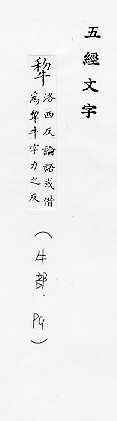 五經文字
犂
洛西反論語或借
為犂牛字力之反
(牛部. P4)